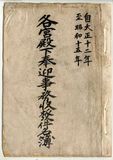 自大正十二年
至昭和十五年
各宮殿下奉迎事務收發件名簿